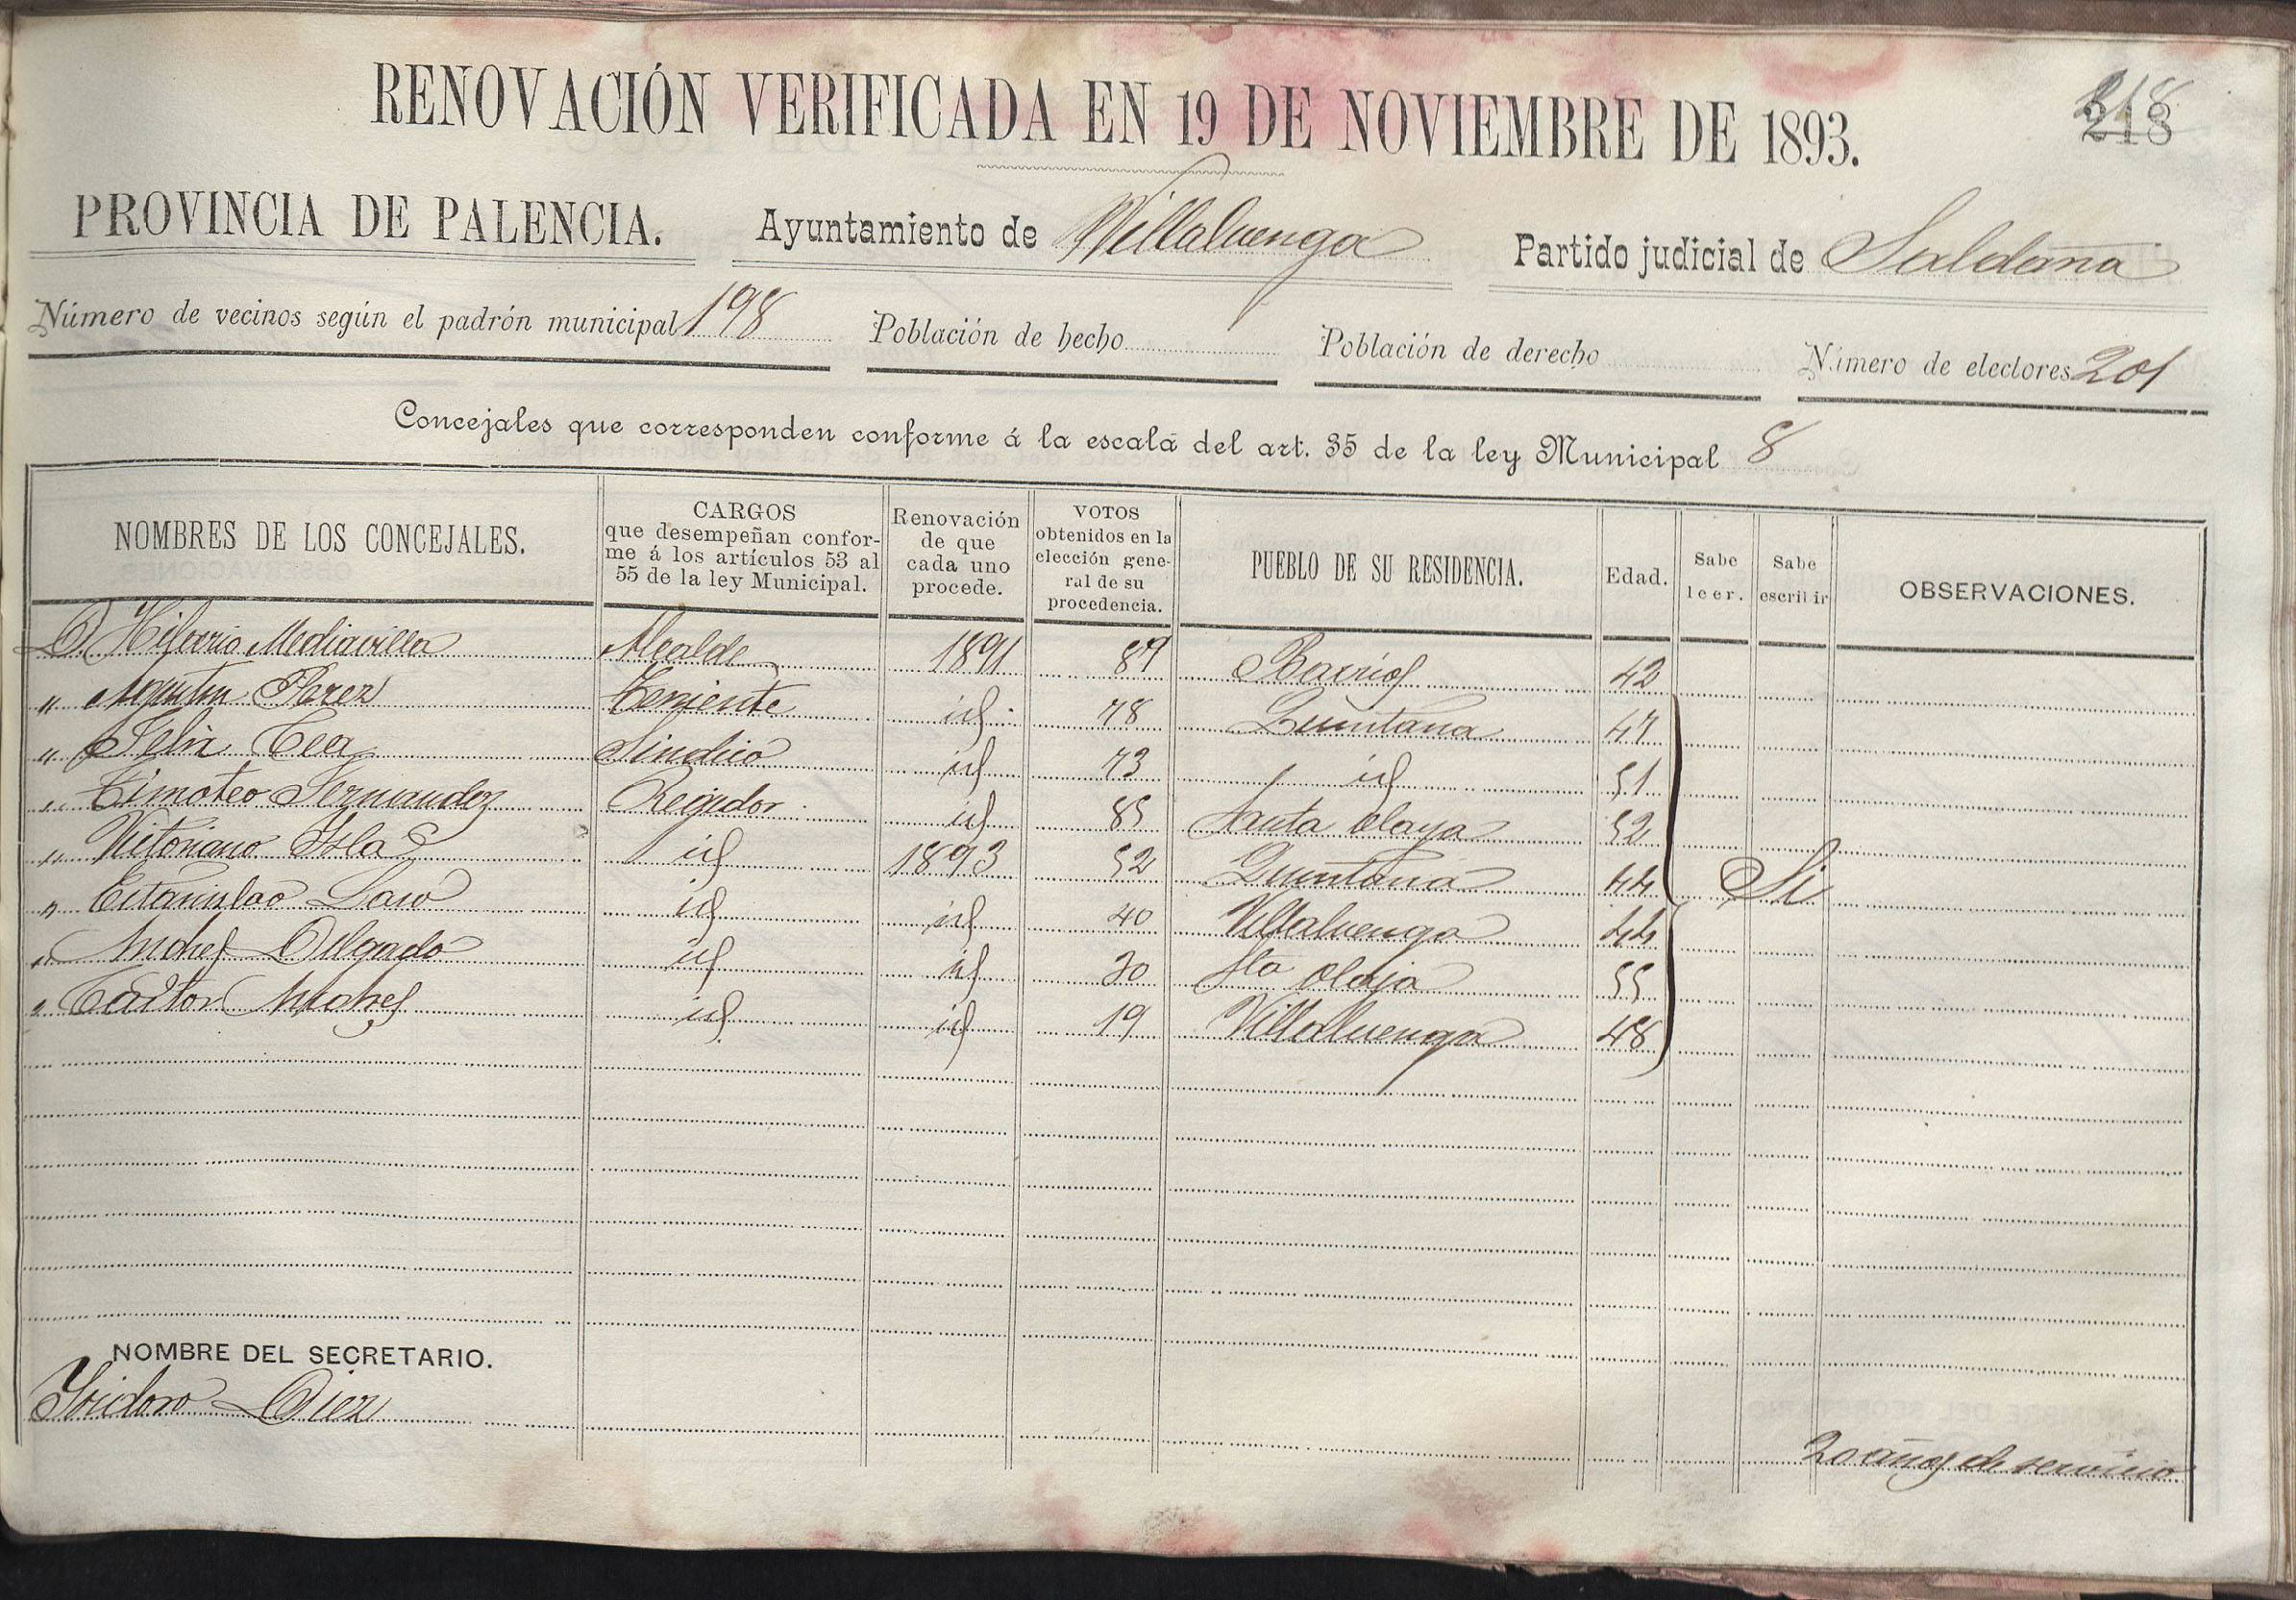 RENOVACIÓN VERIFICADA EN 19 DE NOVIEMBRE DE 1893.
218
218
PROVINCIA DE PALENCIA. Ayuntamiento de Villaluenga Partido judicial de Saldaña
Número de vecinos según el padrón municipal 198 Población de hecho Población de derecho Número de electores 201
Concejales que corresponden conforme á la escala del art. 35 de la ley Municipal 8
NOMBRES DE LOS CONCEJALES. CARGOS que desempeñan confor- me á los artículos 53 al 55 de la ley Municipal. Renovación de que cada uno procede. VOTOS obtenidos en la elección gene- ral de su procedencia. PUEBLO DE SU RESIDENCIA. Edad. Sabe leer. Sabe escribir OBSERVACIONES.
D. Mediavilla Alcalde 1891 Barrios 42
" Agustin Perez Teniente id. 78 Quintana 47
" Felix Cea Sindico id 73 id 51
" Timoteo Fernandez Regidor id 85 Santa Olaya 52
" Victoriano Isla id 1893 52 Quintana 44 Si
" Estanislao Laso id id 40 Villaluenga 44
" Andres Delgado id id 20 Sta Olaja 55
" Castor Andres id id 19 Villaluenga 48
NOMBRE DEL SECRETARIO.
Ysidoro Diez
20 años de servicio